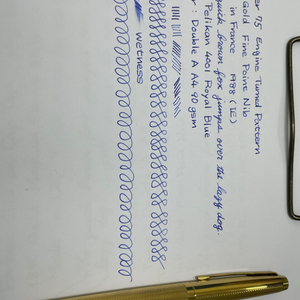 er 75 Engine Turned Pattern
Gold Fine Point Nib
in France 1988 (IE)
quick brown fox jumps over the lazy dog.
Pelikan 4001 Royal Blue
: Double A A4 90 gsm
wetness